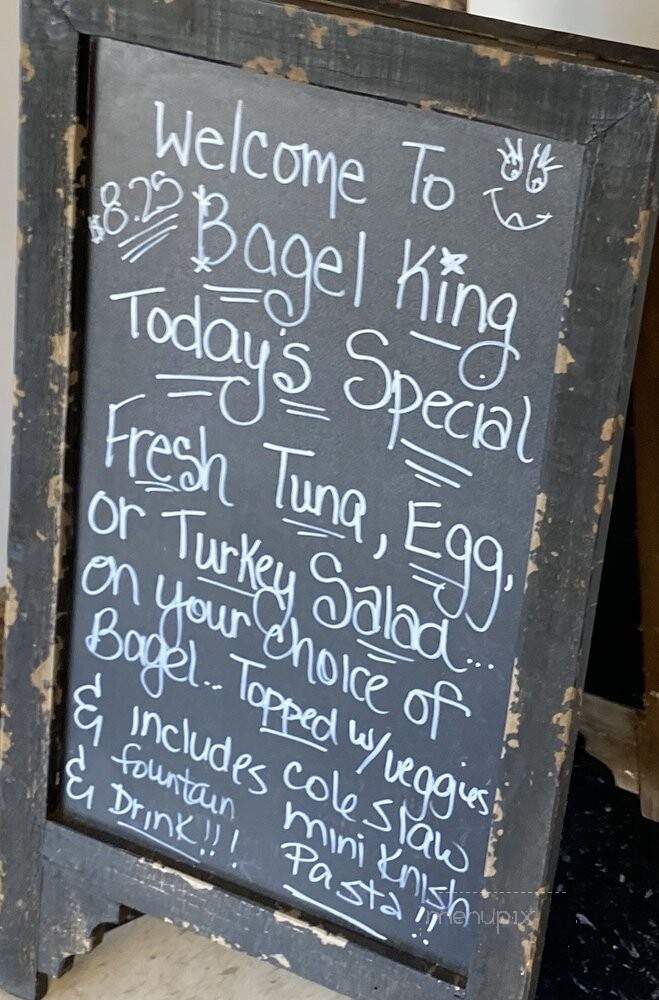 Welcome To
$8.25 Bagel King
Today's Special
Fresh Tuna, Egg,
or Turkey Salad...
on your choice of
Bagel.. Topped w/veggies
& includes cole slaw
& fountain mini knish
Drink!!! Pasta!!
menupix